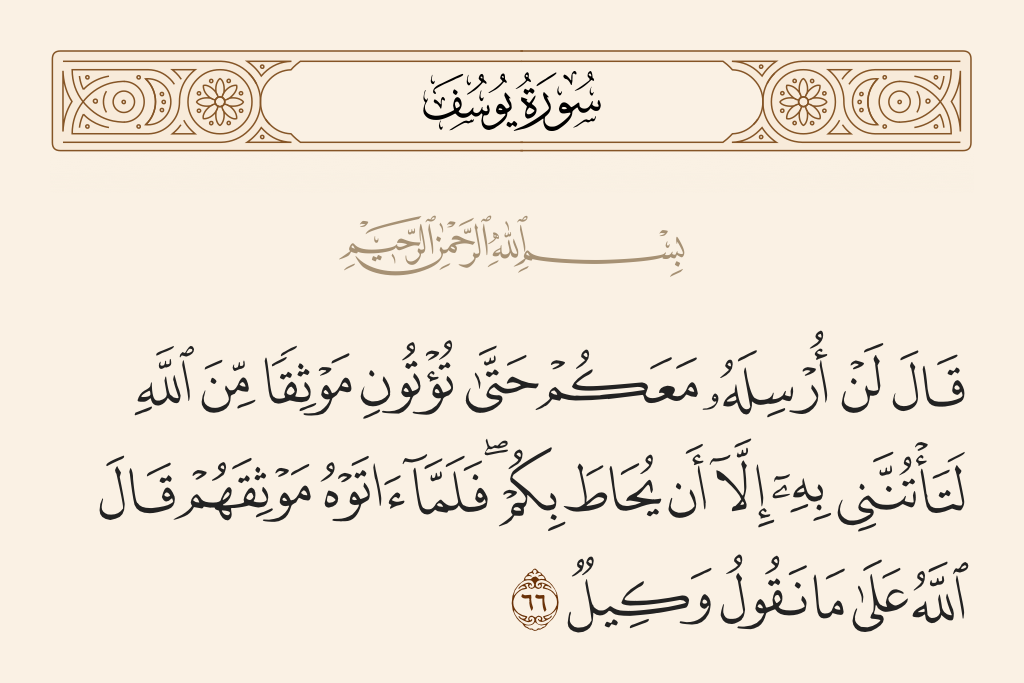 سُورَةُ يُوسُفَ
بِسْمِ ٱللَّهِ ٱلرَّحْمَٰنِ ٱلرَّحِيمِ
قَالَ لَنْ أُرْسِلَهُۥ مَعَكُمْ حَتَّىٰ تُؤْتُونِ مَوْثِقًا مِّنَ ٱللَّهِ
لَتَأْتُنَّنِى بِهِۦٓ إِلَّآ أَن يُحَاطَ بِكُمْ ۖ فَلَمَّآ ءَاتَوْهُ مَوْثِقَهُمْ قَالَ
ٱللَّهُ عَلَىٰ مَا نَقُولُ وَكِيلٌ ٦٦